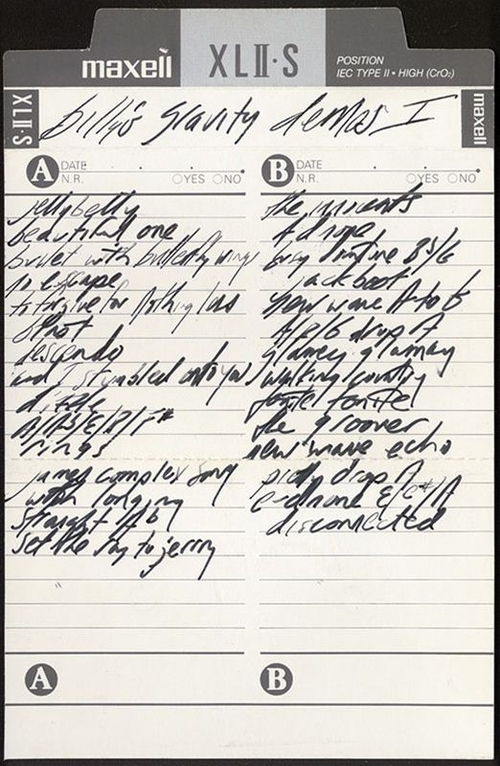 maxell XLII·S POSITION
IEC TYPE II • HIGH (CrO₂)
XLII·S
billy's gravity demos I
maxell
A DATE
N.R. YES NO
jellybelly
beautiful one
bullet with butterfly wings
no escape
to forgive for nothing less
descendo
and I stumbled onto you
rings
james complex song
with longing
straight A b
set the ray to jerry
B DATE
N.R. YES NO
the innocents
jackboot
new wave A to G
A/D/G drop A
glamey glamey
working country
the groover
new wave echo
drop A
E/C#/A
disconnected
A
B